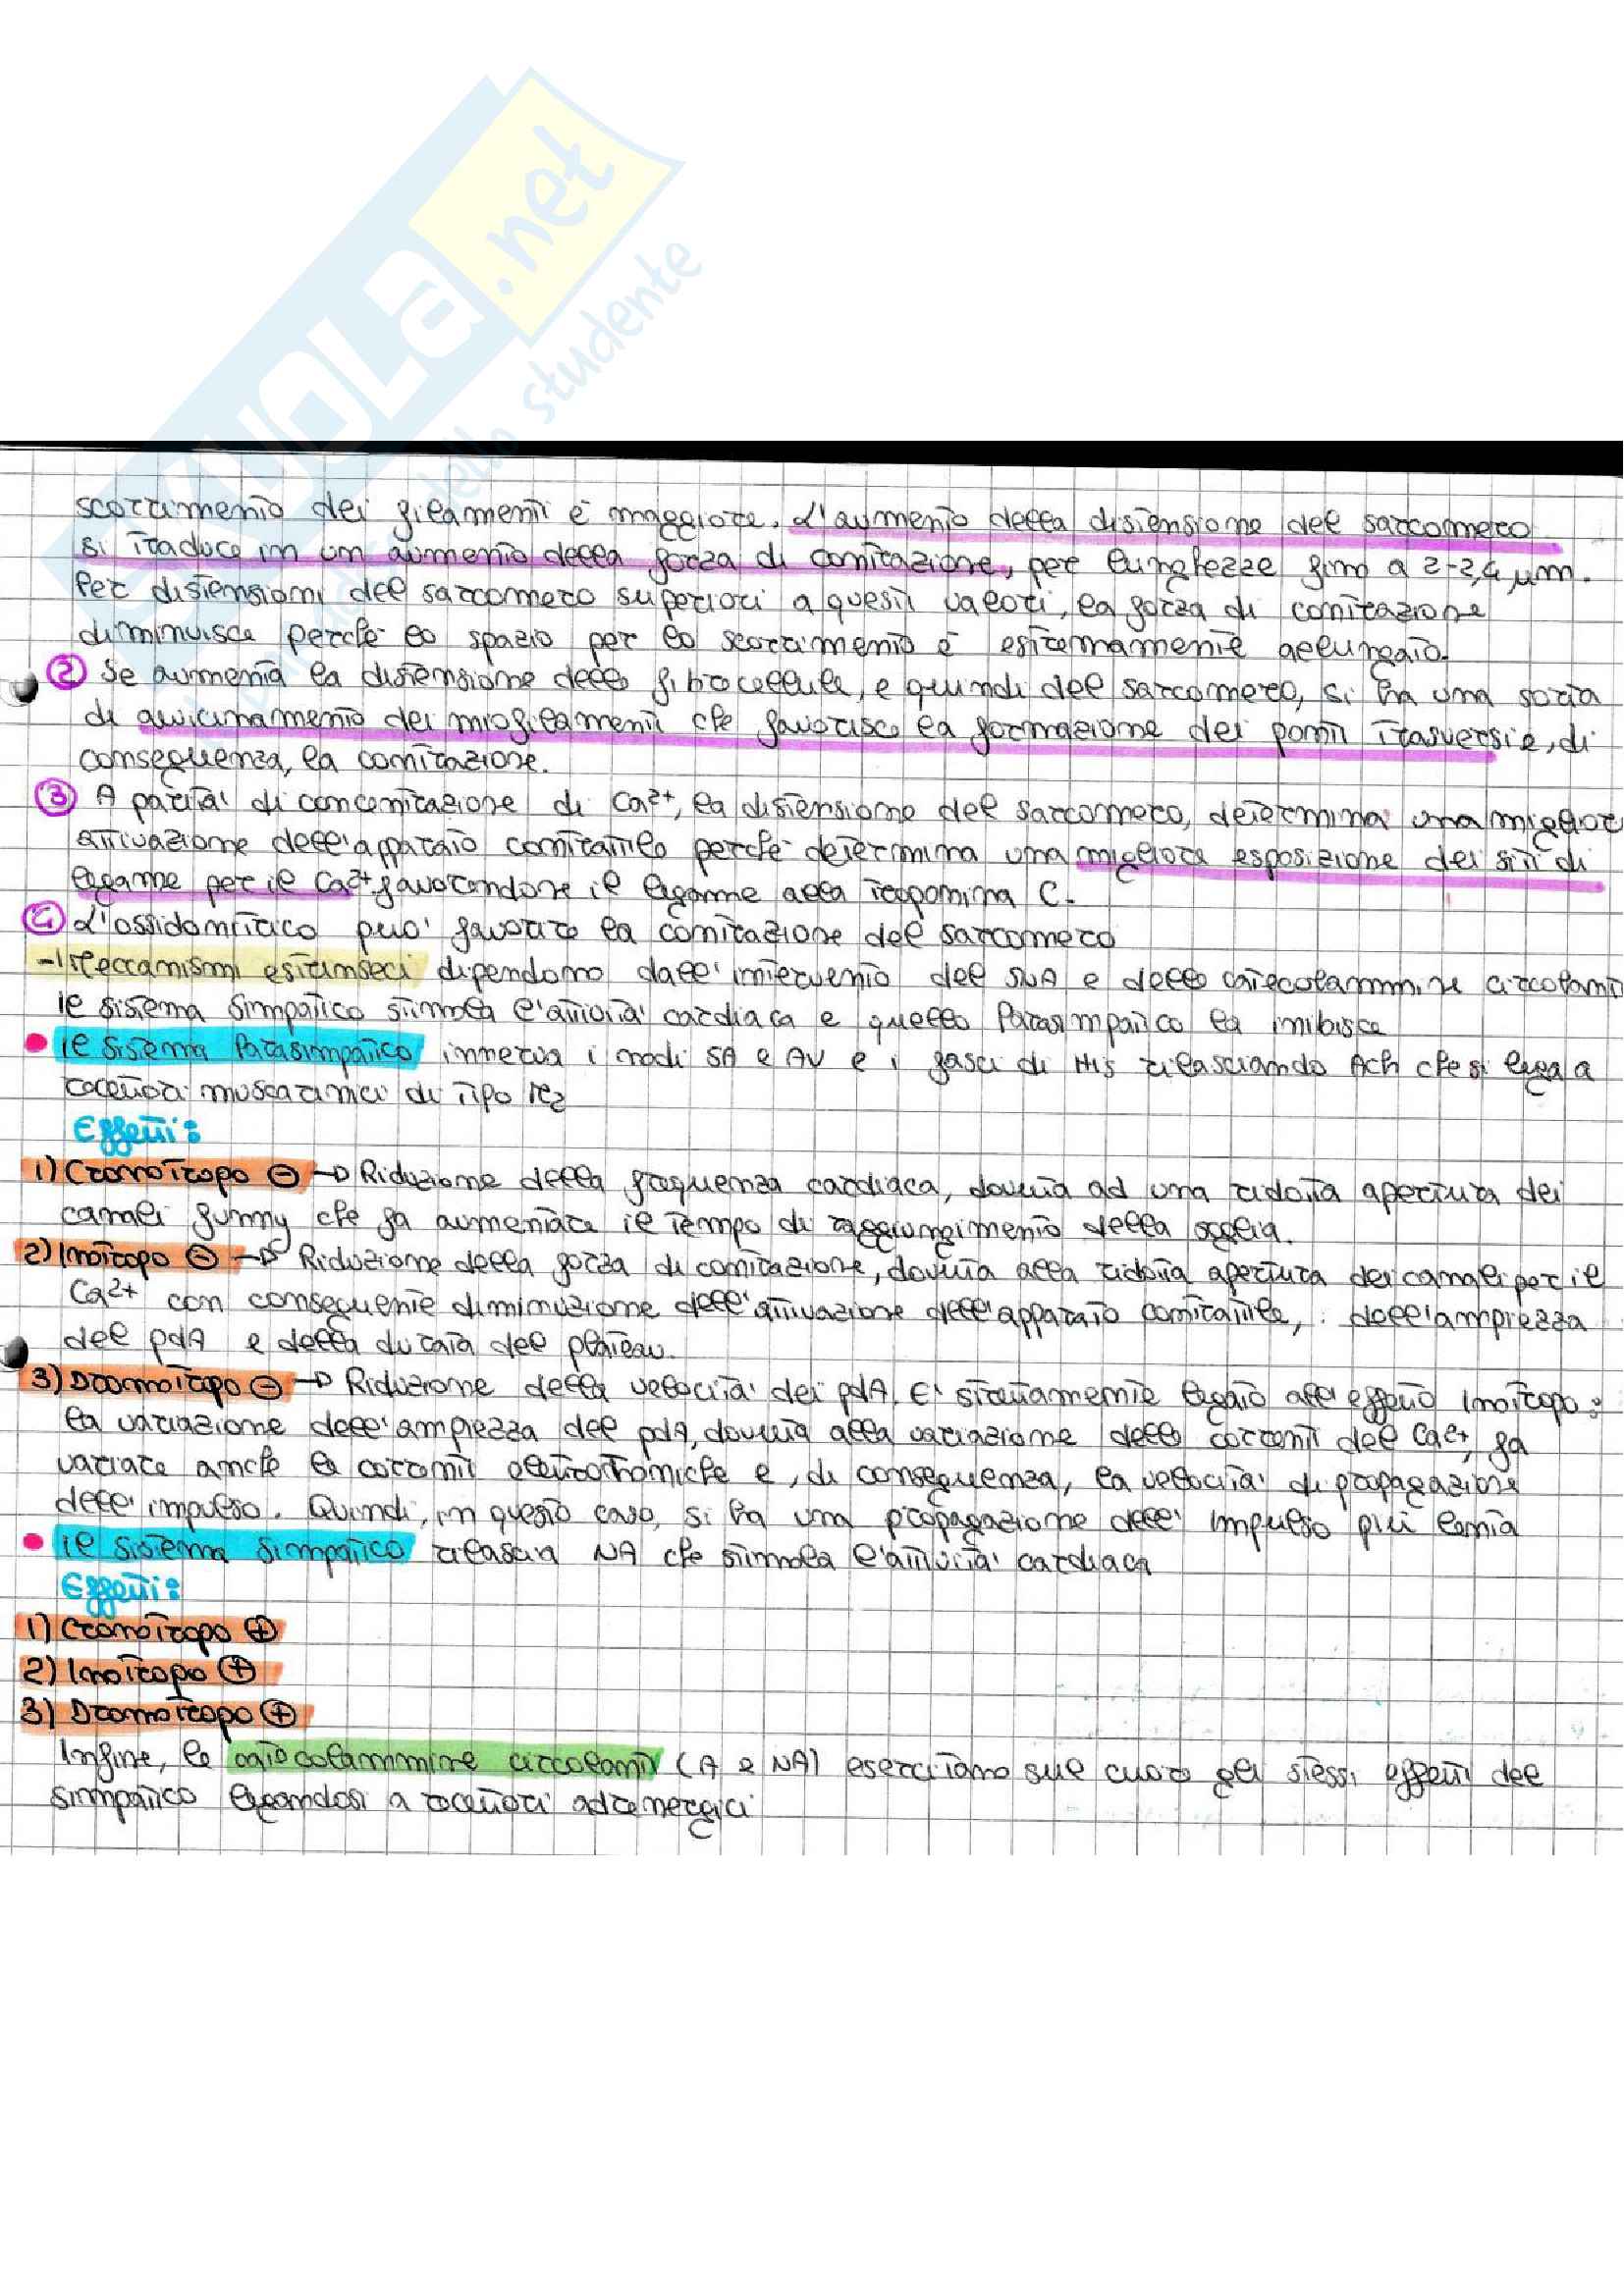 SKUOLA.net
il paradiso dello studente
scorrimento dei filamenti è maggiore. L'aumento della distensione del sarcomero
si traduce in un aumento della forza di contrazione, per lunghezze fino a 2-2,4 μm.
Per distensioni del sarcomero superiori a questi valori, la forza di contrazione
diminuisce perché lo spazio per lo scorrimento è estremamente allungato.
② Se aumenta la distensione delle fibrocellule, e quindi del sarcomero, si ha una sorta
di avvicinamento dei miofilamenti che favorisce la formazione dei ponti trasversi e, di
conseguenza, la contrazione.
③ A parità di concentrazione di Ca²⁺, la distensione del sarcomero, determina una miglior
attivazione dell'apparato contrattile perché determina una migliore esposizione dei siti di
legame per il Ca²⁺ favorendone il legame alla troponina C.
④ L'ossido nitrico può favorire la contrazione del sarcomero
- I Meccanismi estrinseci dipendono dall'intervento del SNA e delle catecolammine circolanti
il sistema simpatico stimola l'attività cardiaca e quello Parasimpatico la inibisce
• il sistema Parasimpatico innerva i nodi SA e AV e i fasci di His rilasciando Ach che si lega a
recettori muscarinici di tipo M₂
Effetti:
1) Cronotropo ⊖ → Riduzione della frequenza cardiaca, dovuta ad una ridotta apertura dei
canali funny che fa aumentare il tempo di raggiungimento della soglia.
2) Inotropo ⊖ → Riduzione della forza di contrazione, dovuta alla ridotta apertura dei canali per il
Ca²⁺ con conseguente diminuzione dell'attivazione dell'apparato contrattile, dell'ampiezza
del pdA e della durata del plateau.
3) Dromotropo ⊖ → Riduzione della velocità dei pdA. E' strettamente legato all'effetto Inotropo:
la variazione dell'ampiezza del pdA, dovuta alla variazione delle correnti del Ca²⁺, fa
variare anche le correnti elettrotoniche e, di conseguenza, la velocità di propagazione
dell'impulso. Quindi, in questo caso, si ha una propagazione dell'impulso più lenta
• il sistema simpatico rilascia NA che stimola l'attività cardiaca
Effetti:
1) Cronotropo ⊕
2) Inotropo ⊕
3) Dromotropo ⊕
Infine, le catecolammine circolanti (A e NA) esercitano sul cuore gli stessi effetti del
simpatico legandosi a recettori adrenergici